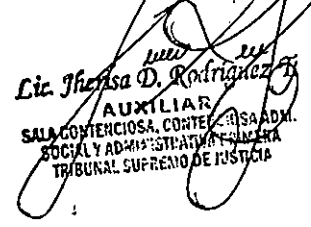 Lic. Jhenisa D. Rodriguez T.
AUXILIAR
SALA CONTENCIOSA, CONTENCIOSA ADM.
SOCIAL Y ADMINISTRATIVA PRIMERA
TRIBUNAL SUPREMO DE JUSTICIA